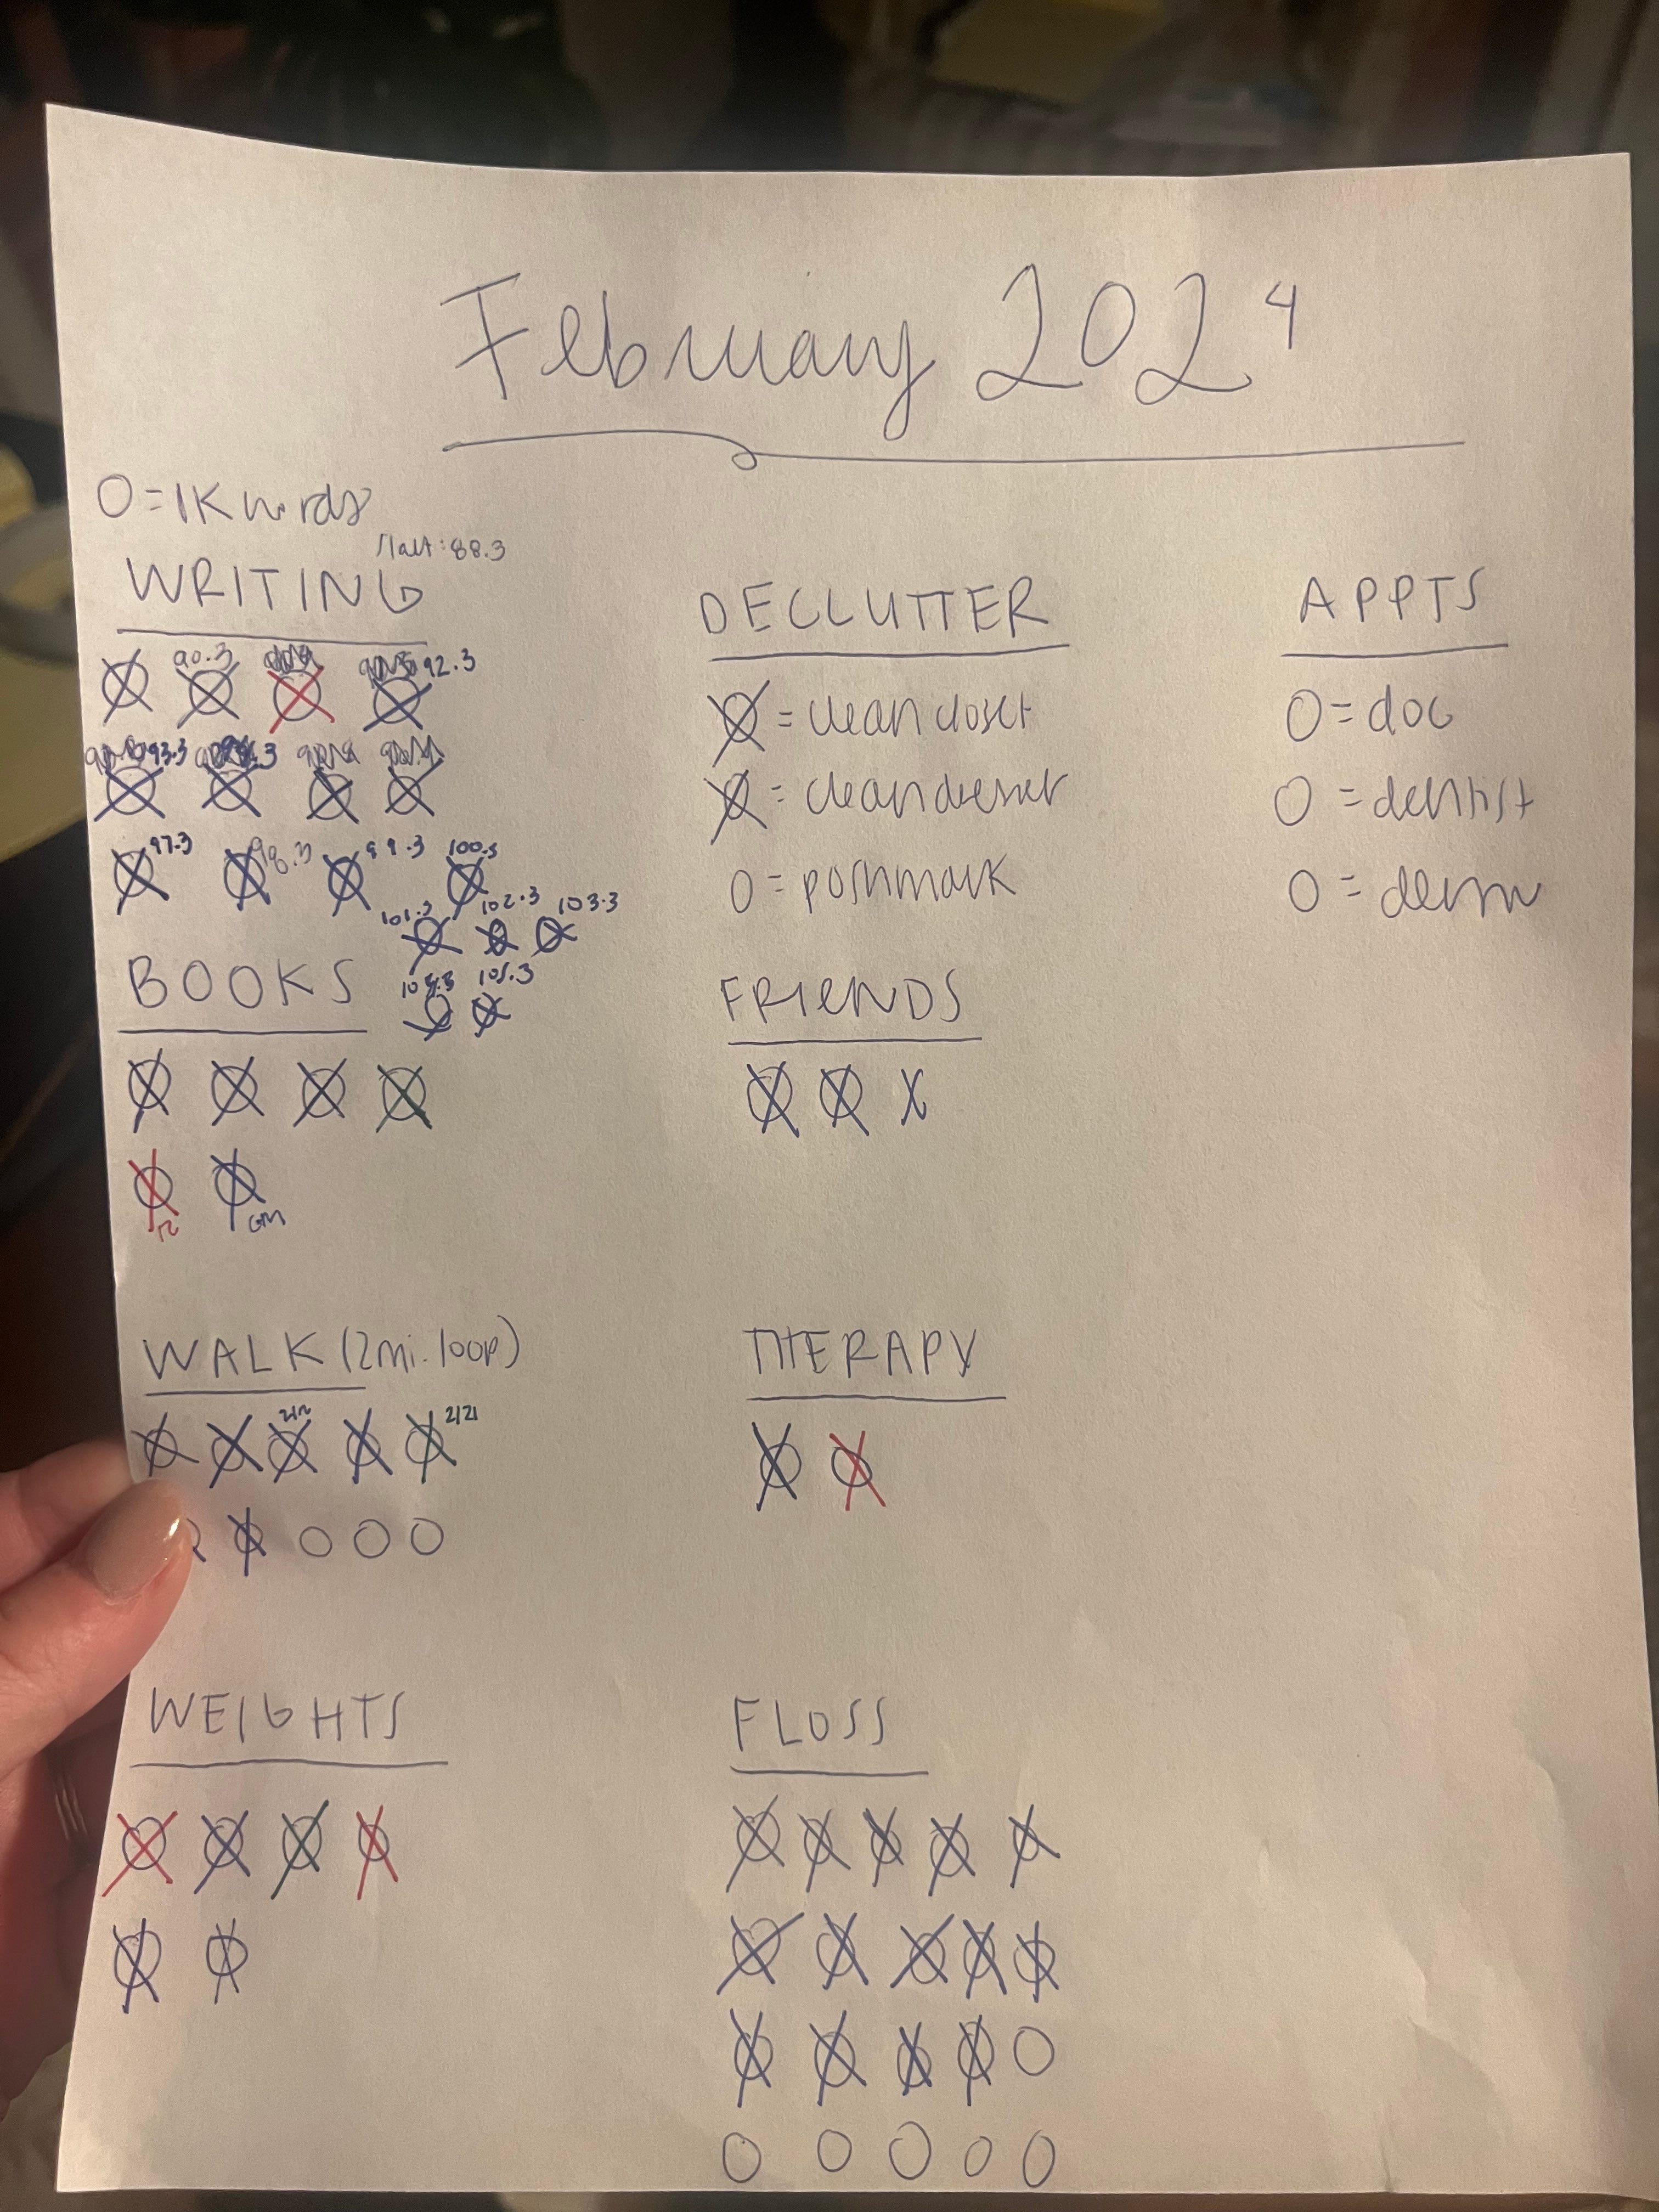 February 2024
O = 1K words
start: 88.3
WRITING
90.3
92.3
93.3
97.3 98.3 99.3 100.3
101.3 102.3 103.3
104.3 105.3
BOOKS
GM
WALK (2 mi. loop)
2/21
WEIGHTS
DECLUTTER
O = clean closet
O = clean dresser
O = poshmark
FRIENDS
THERAPY
FLOSS
APPTS
O = doc
O = dentist
O = derm